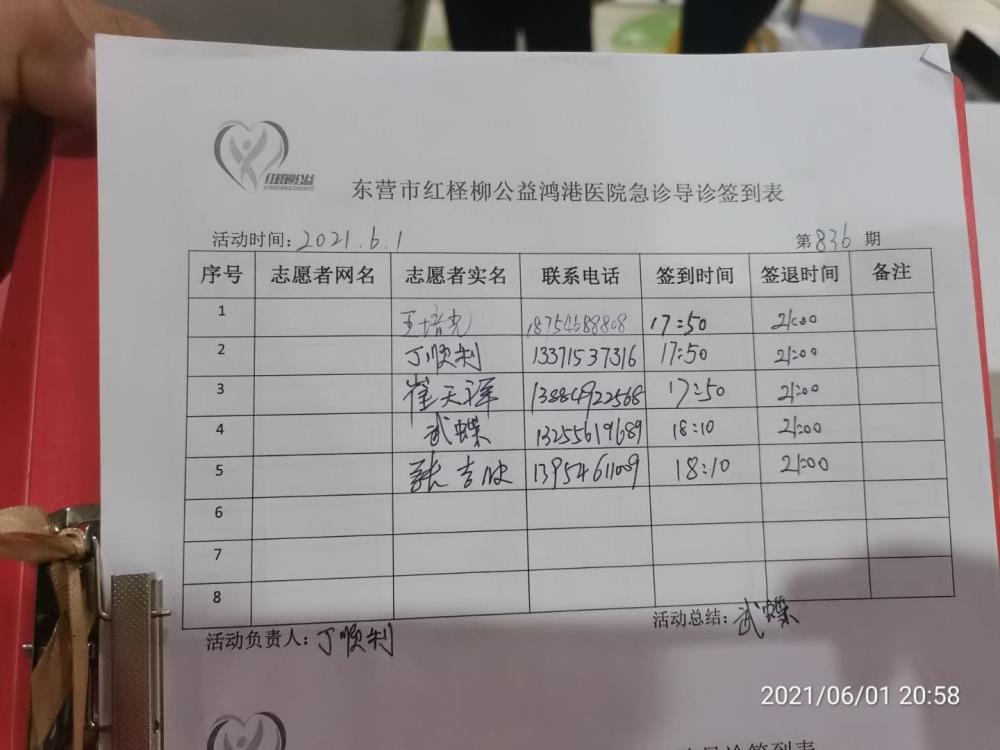 红柽柳公益
东营市红柽柳公益鸿港医院急诊导诊签到表
活动时间：2021.6.1 第836期
序号 志愿者网名 志愿者实名 联系电话 签到时间 签退时间 备注
1 王培光 18754688808 17:50 21:00
2 丁顺利 13371537316 17:50 21:00
3 崔天译 13884922568 17:50 21:00
4 武蝶 13255619689 18:10 21:00
5 张吉欣 13954611009 18:10 21:00
6
7
8
活动负责人：丁顺利 活动总结：武蝶
导诊签到表
2021/06/01 20:58